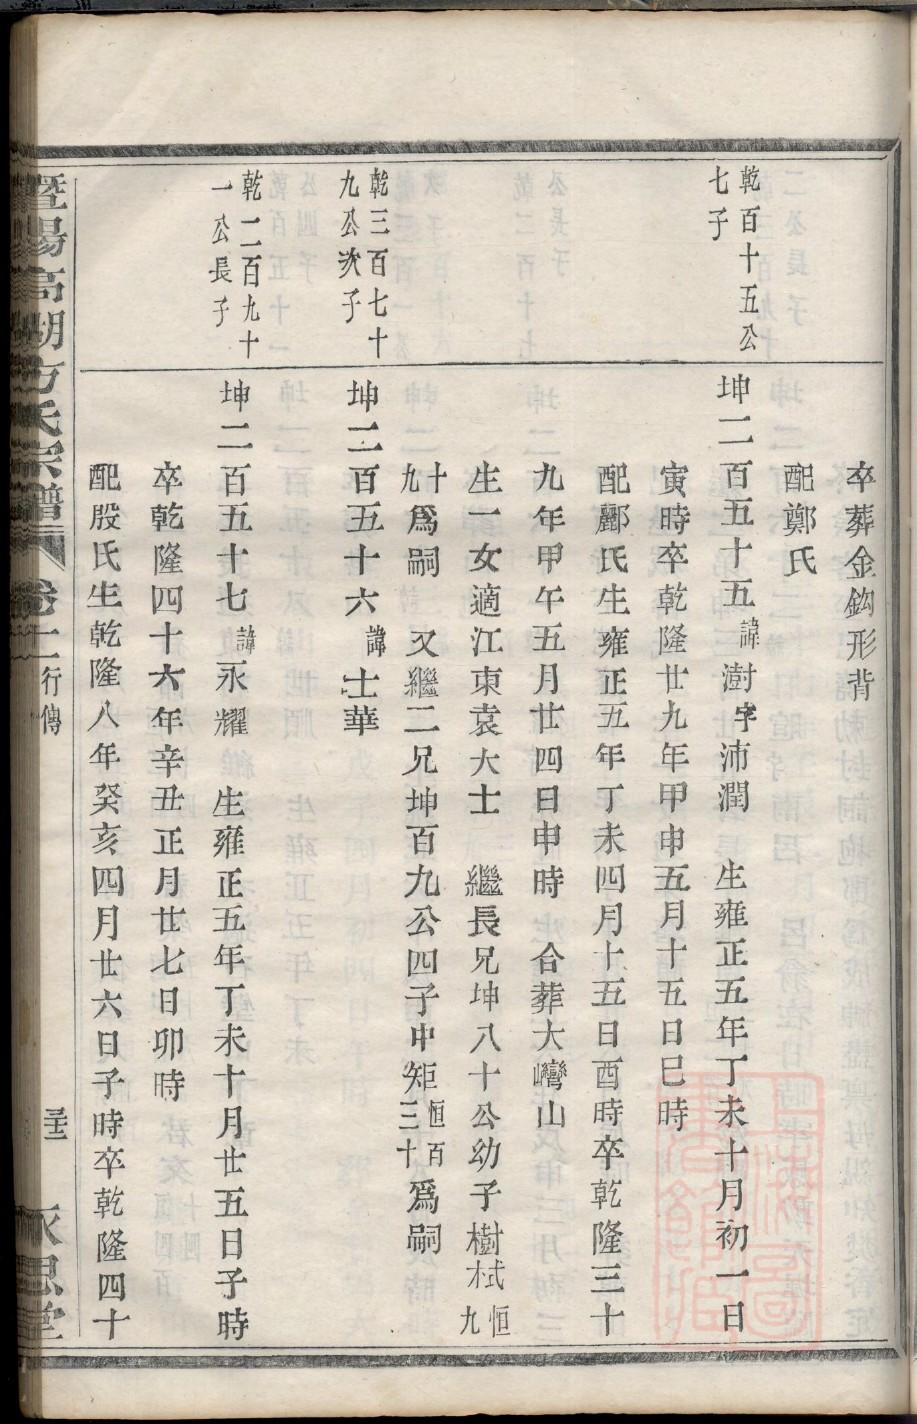 卒葬金鈎形背
配鄭氏
乾百十五公
七子
坤二百五十五諱澍字沛潤　生雍正五年丁未十月初一日
寅時卒乾隆廿九年甲申五月十五日巳時
配酈氏生雍正五年丁未四月十五日酉時卒乾隆三十
九年甲午五月廿四日申時　合葬大巒山
生一女適江東袁大士　繼長兄坤八十公幼子樹栻恒九
十九爲嗣　又繼二兄坤百九公四子中矩恒百三十爲嗣
乾三百七十
九公次子
坤二百五十六諱士華
乾二百九十
一公長子
坤二百五十七諱永耀　生雍正五年丁未十月廿五日子時
卒乾隆四十六年辛丑正月廿七日卯時
配殷氏生乾隆八年癸亥四月廿六日子時卒乾隆四十
暨陽高湖方氏宗譜　卷十一　行傳　永思堂